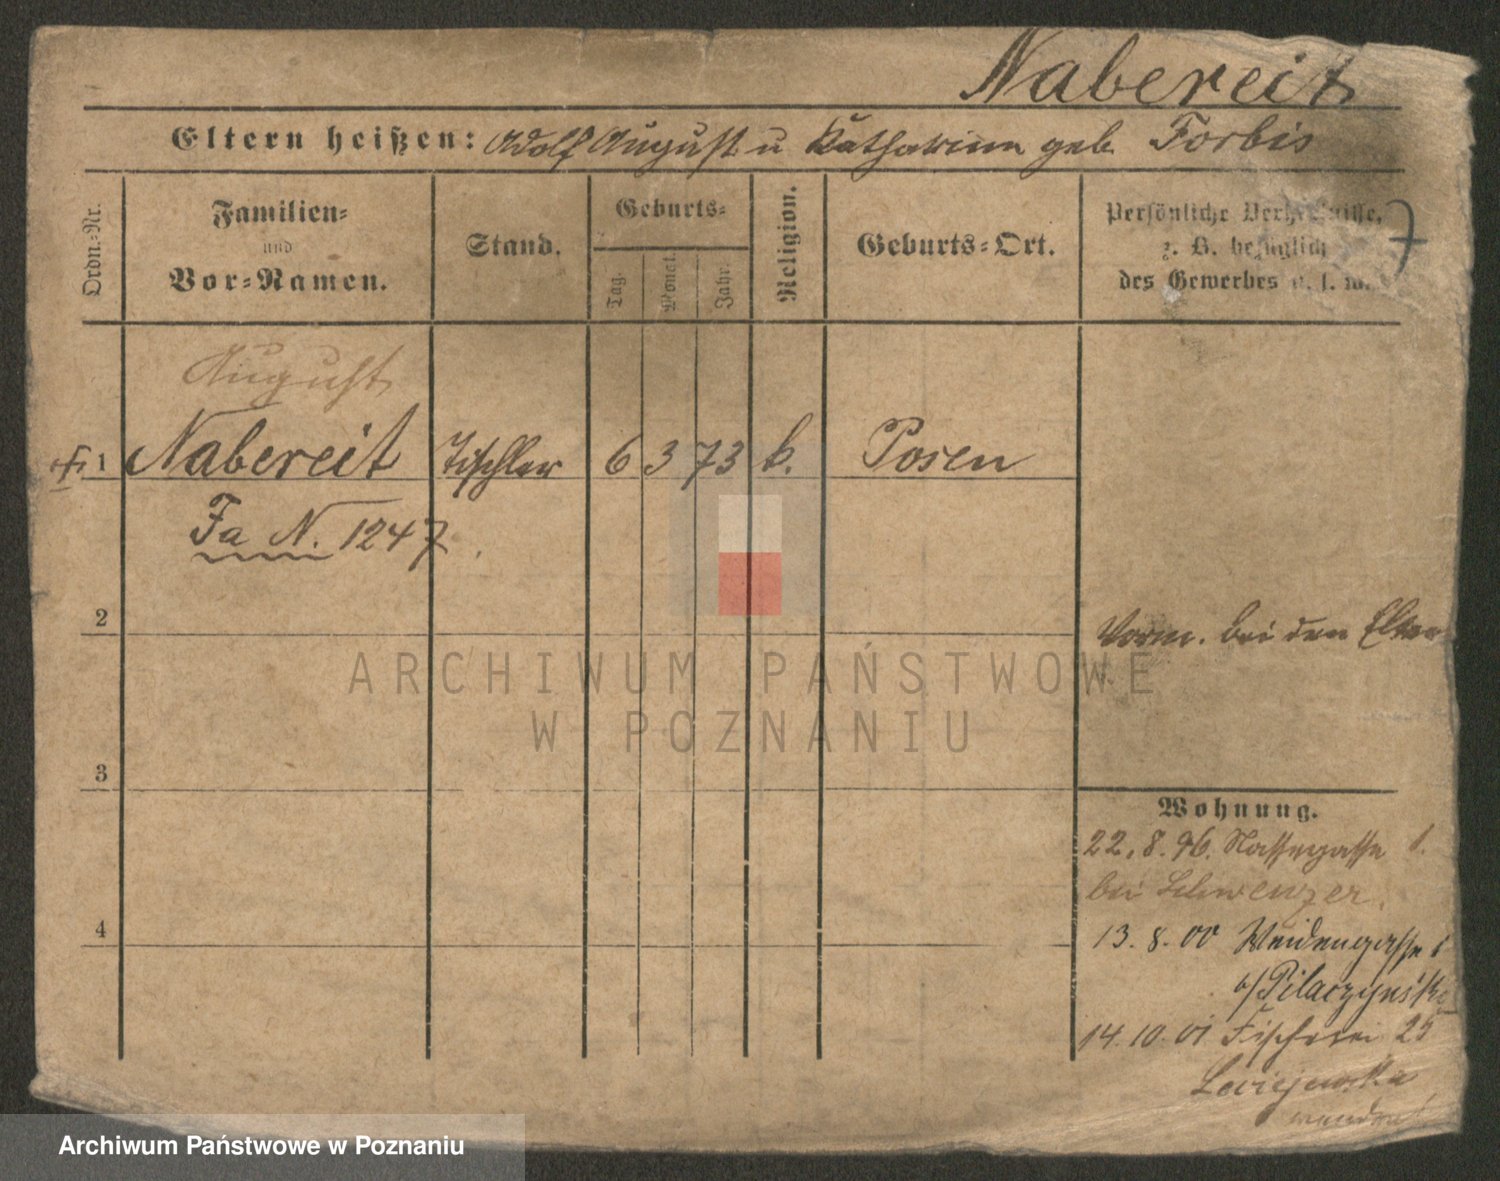 Nabereit
Eltern heißen: Adolf August u Katharina geb. Forbis
Ordn.-Nr.
Familien- und Vor-Namen.
Stand.
Geburts-
Tag.
Monat.
Jahr.
Religion.
Geburts-Ort.
Persönliche Verhältnisse,
z. B. bezüglich
des Gewerbes u. s. w.
7
August
1 Nabereit Tischler 6 3 73 k. Posen
Fa N. 1247.
2
Vorm. bei den Eltern
ARCHIWUM PAŃSTWOWE
W POZNANIU
3
Wohnung.
22.8.96. Nassegasse 1.
bei Schwenzer.
4
13.8.00 Weidengasse 1
b/ Pilaczyński
14.10.01 Fischerei 25
wenden!
Archiwum Państwowe w Poznaniu